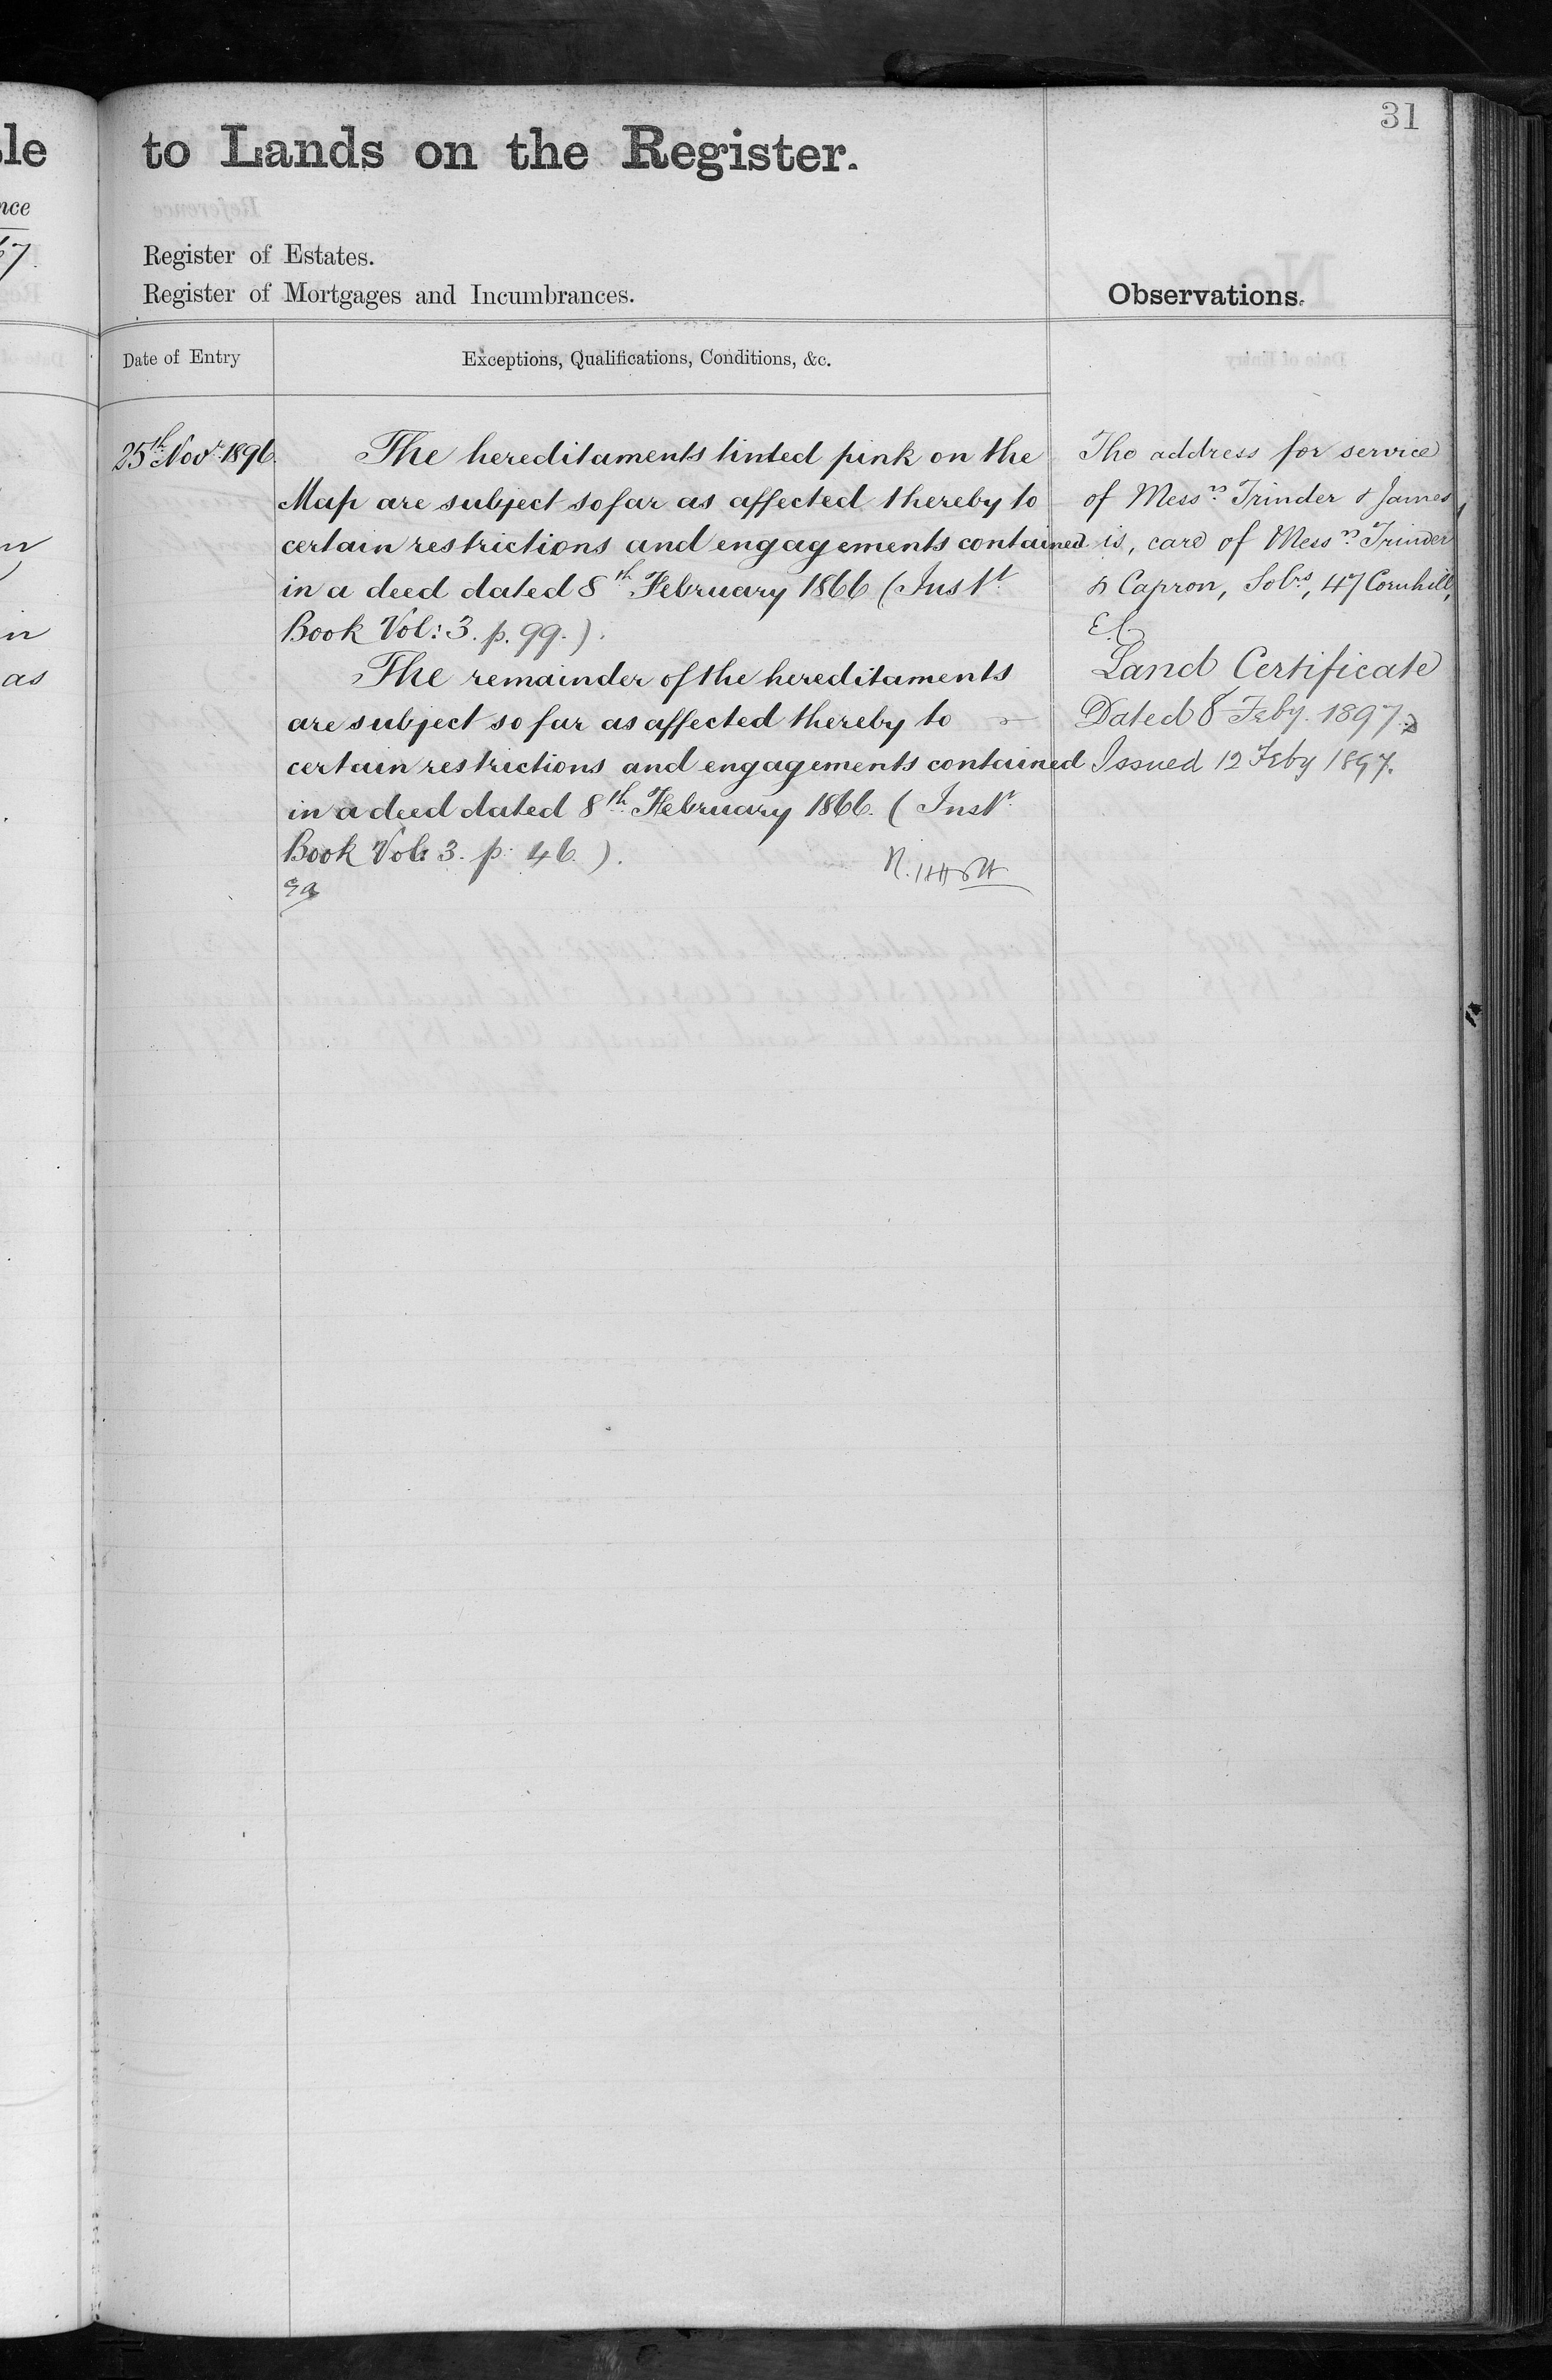 31
to Lands on the Register.
Register of Estates.
Register of Mortgages and Incumbrances.
Observations.
Date of Entry
Exceptions, Qualifications, Conditions, &c.
25th Novr. 1896.
The hereditaments tinted pink on the
Map are subject so far as affected thereby to
certain restrictions and engagements contained
in a deed dated 8th February 1866 (Inst.
Book Vol: 3. p. 99.).
The remainder of the hereditaments
are subject so far as affected thereby to
certain restrictions and engagements contained
in a deed dated 8th February 1866. (Inst.
Book Vol: 3. p. 46.).
The address for service
of Messrs. Trinder & James,
is, care of Messrs. Trinder
& Capron, Solrs, 47 Cornhill,
E.C.
Land Certificate
Dated 8 Feby. 1897.
Issued 12 Feby 1897.